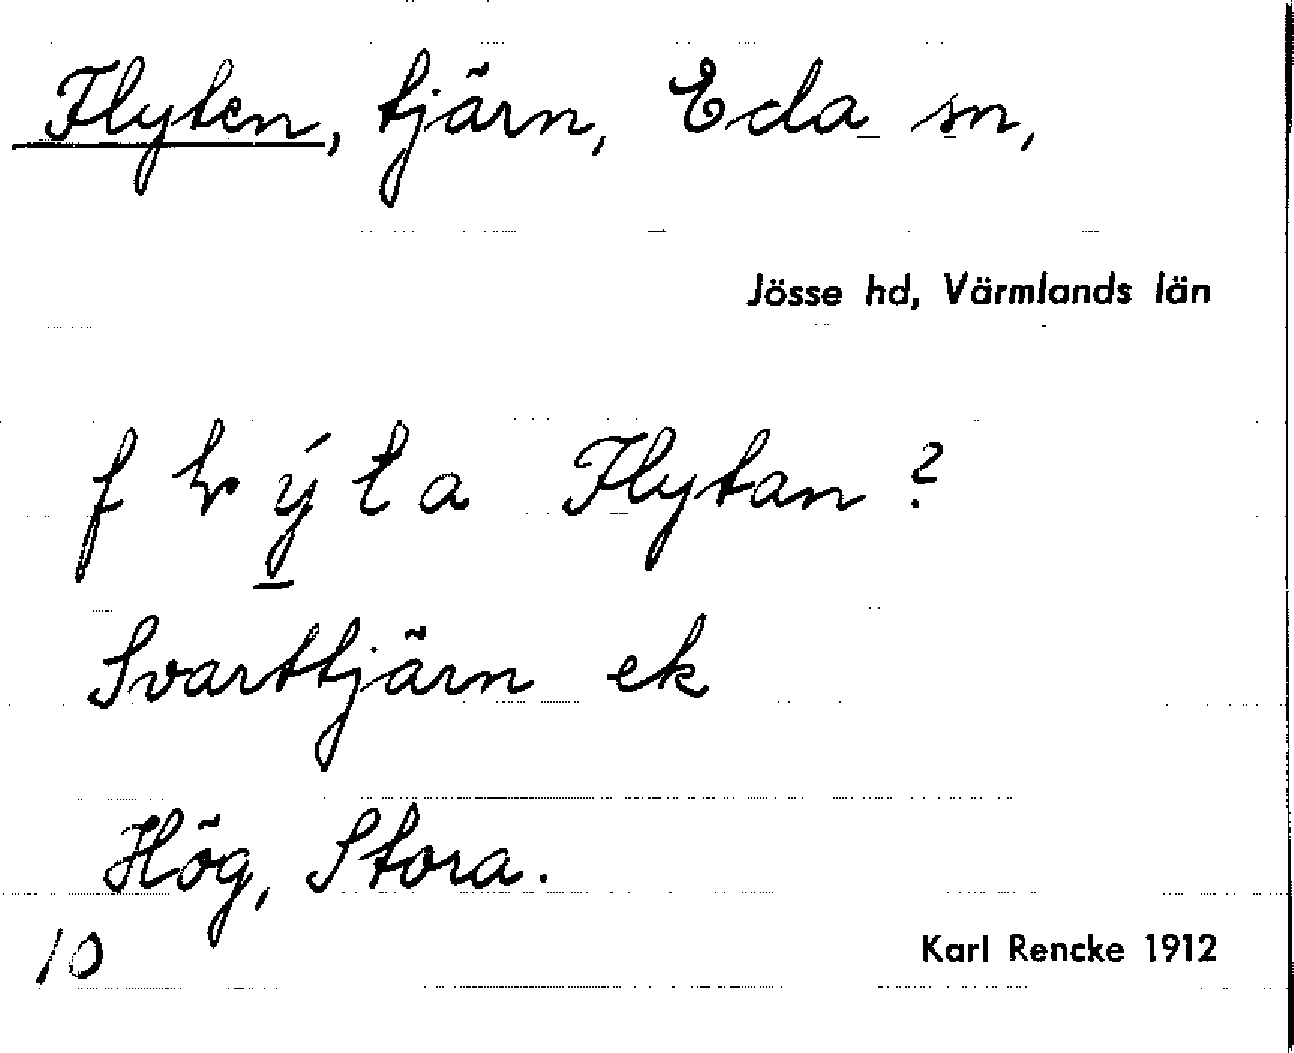 Flyten, tjärn, Eda sn,
Jösse hd, Värmlands län
Flytan ?
Svarttjärn ek
Hög, Stora.
10
Karl Rencke 1912